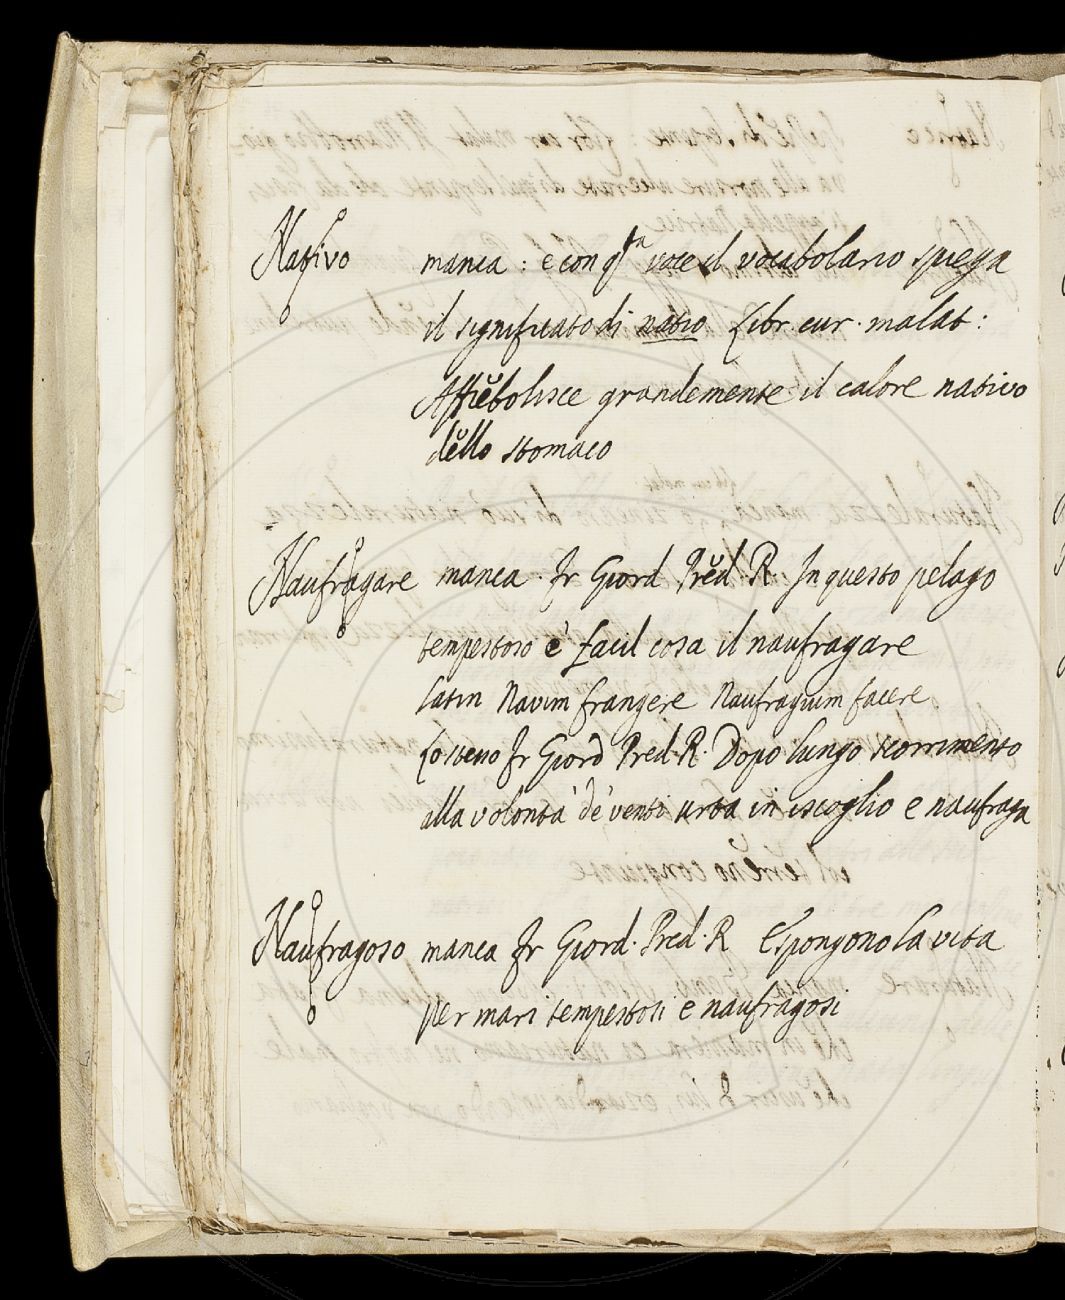 Nativo manca: e con q.ta voce il vocabolario spiega
il significato di natio Libr. cur. malat:
Affiebolisce grandemente il calore nativo
dello stomaco
Naufragare manca. Fr Giord Pred. R. In questo pelago
tempestoso è facil cosa il naufragare
latin Navim frangere Naufragium facere
Lo stesso Fr Giord Pred. R. Dopo lungo scorrimento
alla volontà de' venti urta in iscoglio e naufraga
Naufragoso manca Fr Giord. Pred. R Espongono la vita
per mari tempestosi e naufragosi